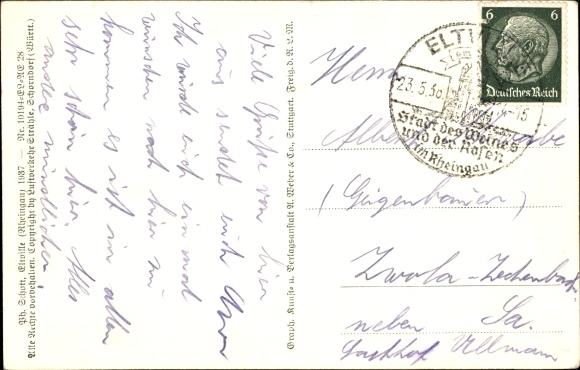 Viele Grüße von hier
aus sendet euch
Ich würde euch einmal
wünschen nach hier zu
kommen es ist in allen
sehr schön hier. Alles
andere mündlicher.
Ph. Schott, Eltville (Rheingau) 1937 — Nr. 10194
Alle Rechte vorbehalten. Copyright by Luftverkehr Strähle, Schorndorf (Württ.)
Graph. Kunst- u. Verlagsanstalt A. Weber & Co., Stuttgart. Freig. d. R. L. M.
6 6
Deutsches Reich
ELTV
23.5.39
15
Stadt des Weines
und der Rosen
im Rheingau
Herrn
(Gügenbauer)
Zwota-Zechenbach
neben Sa.
Gasthof Ullmann